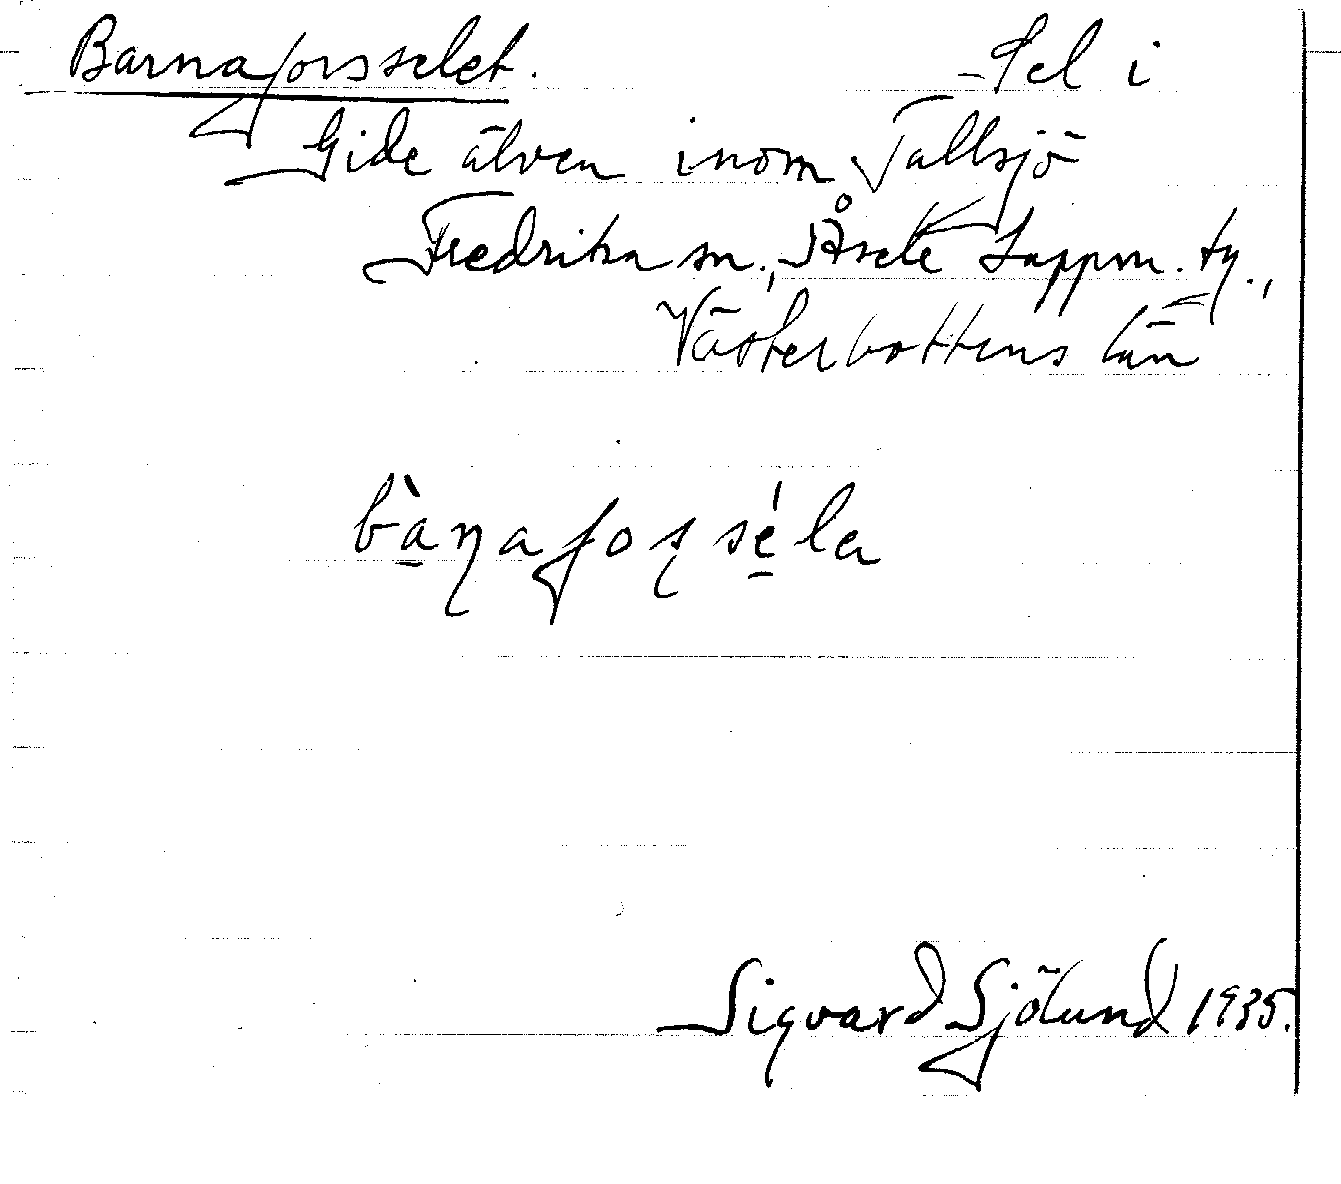 Barnaforsselet. Sel i
Gide älven inom Tallsjö
Fredrika sn., Åsele Lappm. ty.,
Västerbottens län
bànafosséla
Sigvard Sjölund 1935.